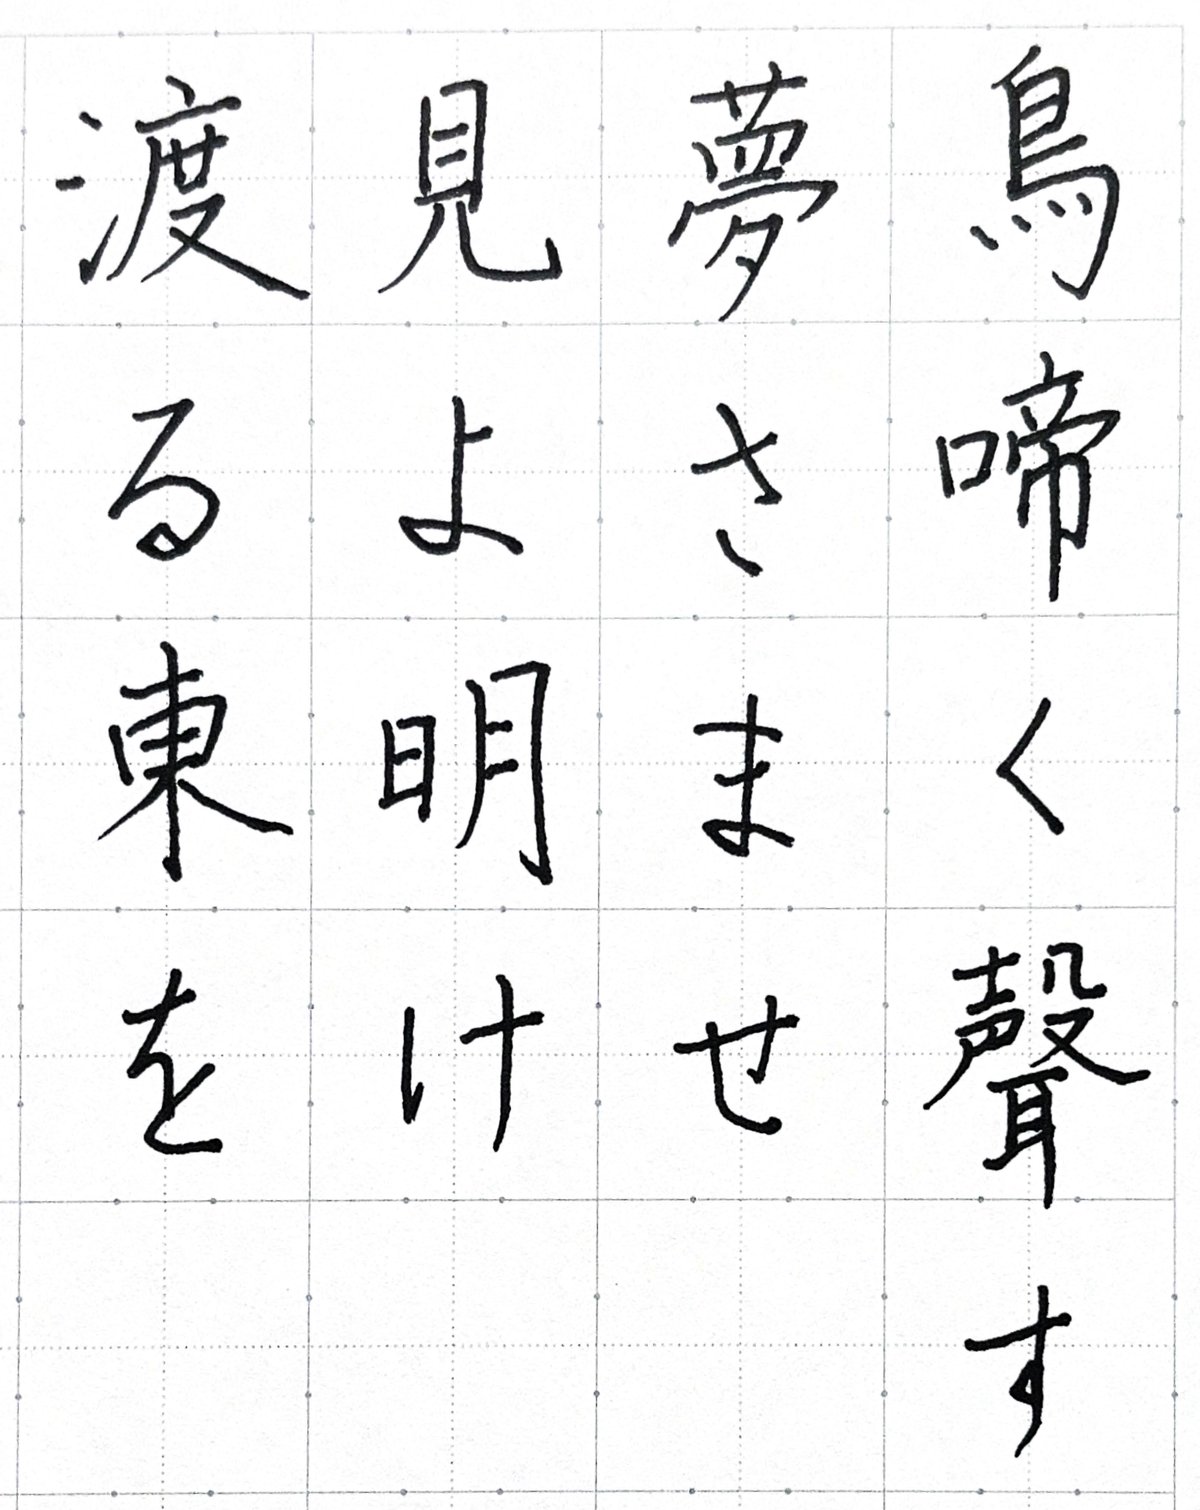 鳥啼く聲す
夢さませ
見よ明け
渡る東を